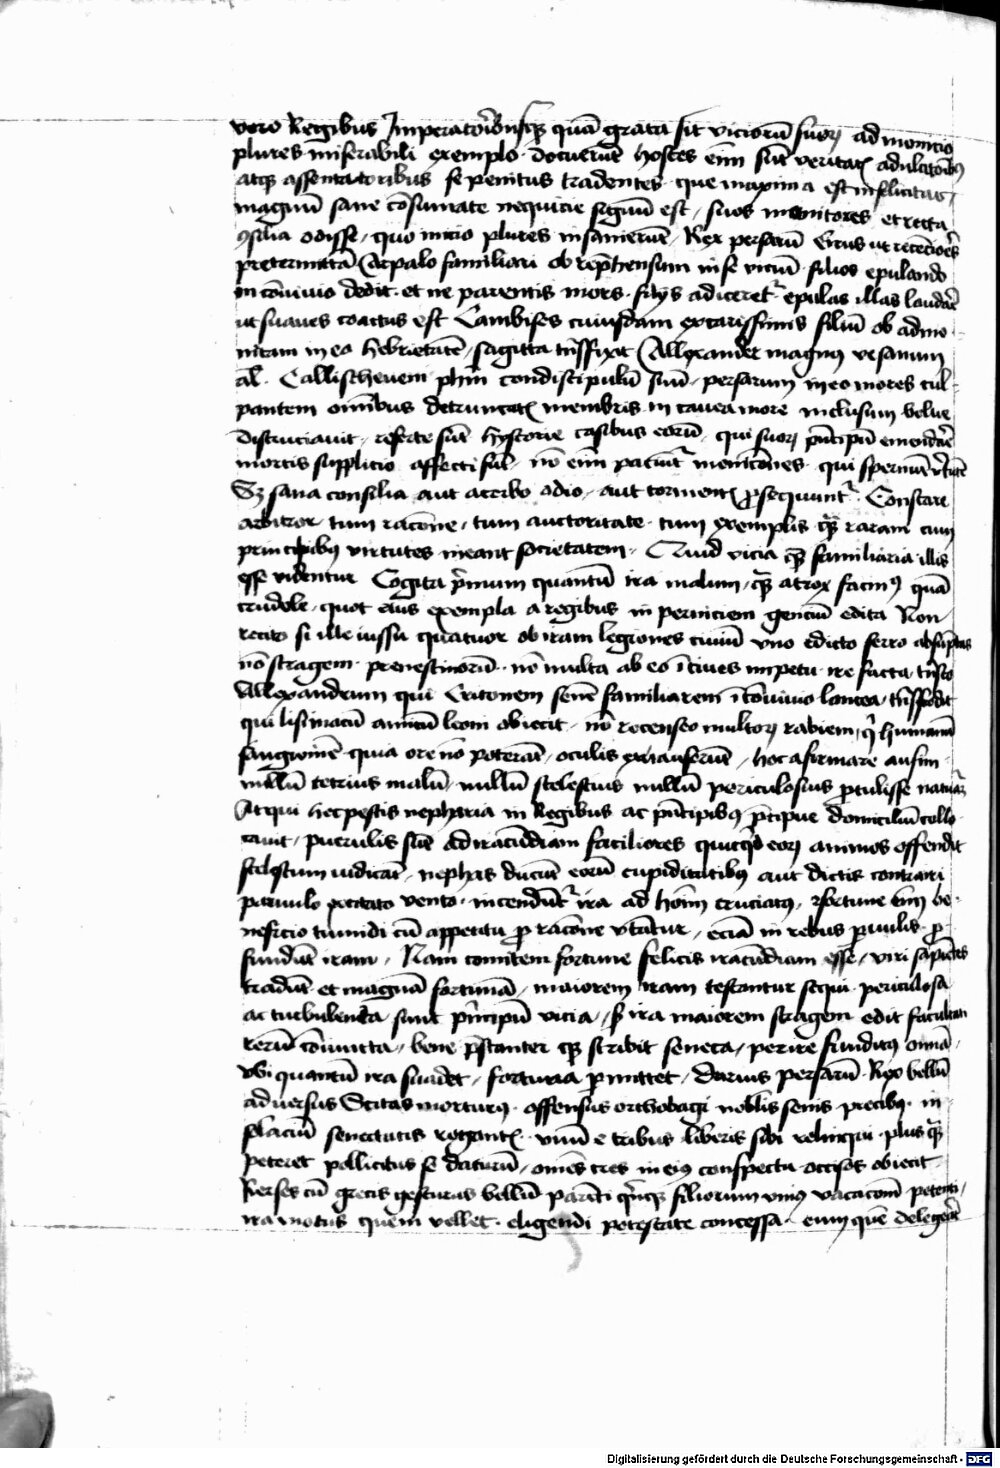 vero Regibus Imperatoribusq₃ quā grata sit viciorū suoꝝ ad monicio
plures miserabili exemplo docuerūt hostes eim sūt veritatꝭ adulatōibus
atq₃ assentatoribus se penitus tradentes que maxima est infelicitas
magnū sane cōsumate nequicie signū est suos monitores et recta
ꝯsilia odisse quo vicio plures insanierūt Rex persarū Cirus ut recēciores
pretermittā Arpalo familiari ob rep̄hensum in se viciū filios epulando
in cōuiuio dedit et ne parentis mors filijs adiceretᷣ epulas illas laudare
ut suaues coactus est Cambises cuiusdam exarissimis filiū ob admo
nitam in eo hebrietatē sagitta trāsfixit Allexander magnus vesanum
al̄ Callischenem ph̄m condiscipulū suū persarum in eo mores cul
pantem omībus detruncatꝭ membris in cauea more inclusum belue
distruciauit referte sūt hystorie casibus eorū qui suoꝝ p̄ncipū emendare
mortis supplicio affecti sūt nō eim paciūtᷣ moniciones qui spernūt v̄tutē
S₃ sana consilia aut acerbo odio aut tormentꝭ ꝓsequuntᷣ Constare
arbitror tum racōne tum auctoritate tum exemplis q̄₃ raram cum
principibus virtutes ineant societatem Quid vicia q̄₃ familiaria illis
esse videntur Cogita p̄mum quantū ira malum q̄₃ atrox facin₉ quā
crudele quot eius exempla a regibus in perniciem genciū edita Non
recito si ille iussu quatuor ob iram legiones ciuiū vno edicto ferro absūptas
nō stragem prenestinorū nō multa ab eo ī ciues impetu ire facta trāseo
Allexandrum qui Critonem senē familiarem ī cōuiuio lancea trāsfodit
qui lisimacū amicū leoni obiecit nō recenseo multoꝝ rabiem q̄ humanū
sanguinē quia ore nō poterāt oculis exhauserūt hoc afirmare ausim
nullū tetrius malū nullū scelestius nullū periculosius ꝓtulisse naturā
Atqui hec pestis nepharia in Regibus ac p̄ncipibus p̄cipue domiciliū collo
cauit puerulis sūt ad iracūdiam faciliores quicq̄d eoꝝ animos offendit
scelestum iudicāt nephas ducūt eorū cupiditatibus aut dictis contrairi
paruulo excitato vento incendūtᷣ ira ad hoīm cruciatus ⁊ fortune eim be
neficio tumidi cū appetitu ꝓ racōne vtātur eciā in rebus ꝑuulis ꝓ
fundūt iram Nam comitem fortune felicis iracūdiam esse viri sapiētes
tradūt et magnā fortunā maiorem iram testantur sequi periculosa
ac turbulenta sunt p̄ncipū vicia ꝙ ira maiorem stragem edit facultati
rerū cōiuncta bene p̄stanter q₃ scribit seneca perire funditus omīa
vbi quantū ira suadet fortuna ꝑmittet Darius persarū Rex bellū
aduersus Scitas moturus offensus orthobagi nobilis senis precibus in
solaciū senectutis rogantꝭ vnū e tribus liberis sibi relinqui plus q̄₃
peteret pollicitus se daturū omēs tres in eius conspectu occisos obiecit
Xerses cū grecis gesturus bellū parenti q̄nq₃ filiorum vnius vacacōm petenti
ira motus quem vellet eligendi potestate concessa eum quē delegerat